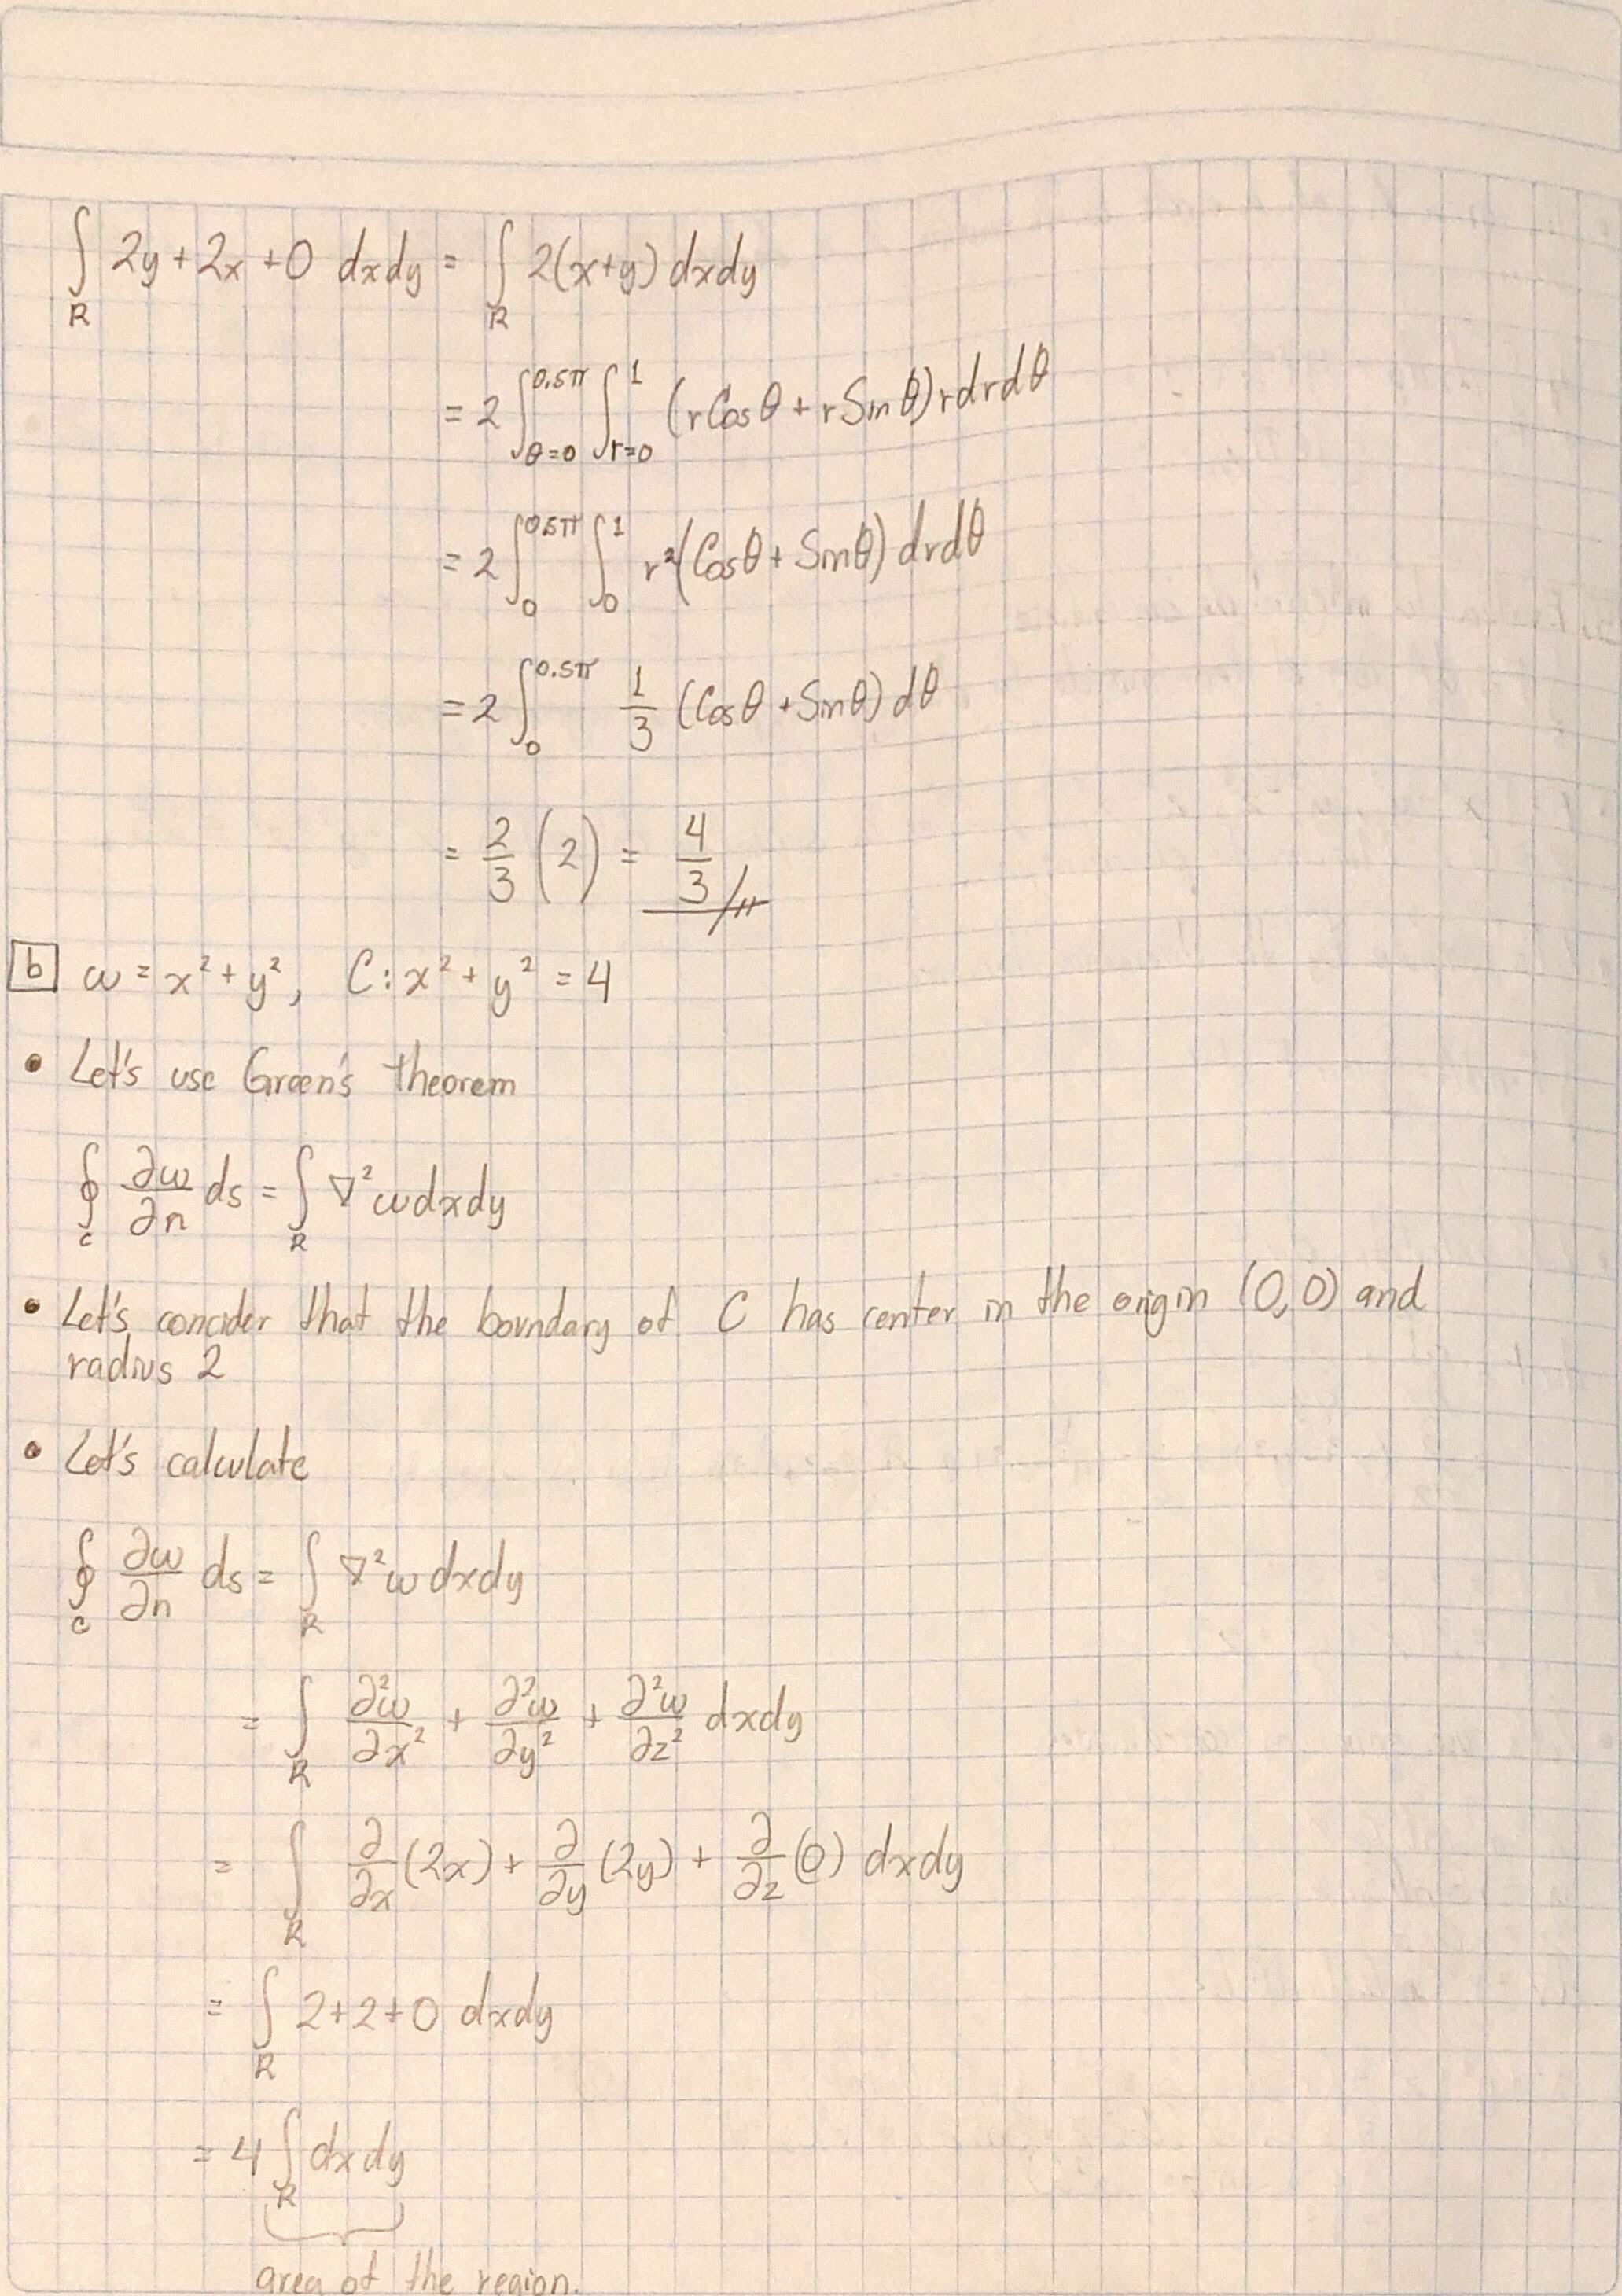 ∫_R 2y + 2x + 0 dxdy = ∫_R 2(x+y) dxdy
= 2 ∫_{θ=0}^{0.5π} ∫_{r=0}^{1} (rCosθ + rSinθ) r dr dθ
= 2 ∫_0^{0.5π} ∫_0^1 r²(Cosθ + Sinθ) drdθ
= 2 ∫_0^{0.5π} 1/3 (Cosθ + Sinθ) dθ
= 2/3 (2) = 4/3 //
b ω = x² + y², C: x² + y² = 4
• Let's use Green's theorem
∮_c ∂ω/∂n ds = ∫_R ∇²ω dxdy
• Let's concider that the boundary of C has center in the origin (0,0) and
radius 2
• Let's calculate
∮_c ∂ω/∂n ds = ∫_R ∇²ω dxdy
= ∫_R ∂²ω/∂x² + ∂²ω/∂y² + ∂²ω/∂z² dxdy
= ∫_R ∂/∂x (2x) + ∂/∂y (2y) + ∂/∂z (0) dxdy
= ∫_R 2+2+0 dxdy
= 4 ∫_R dxdy
area of the region.